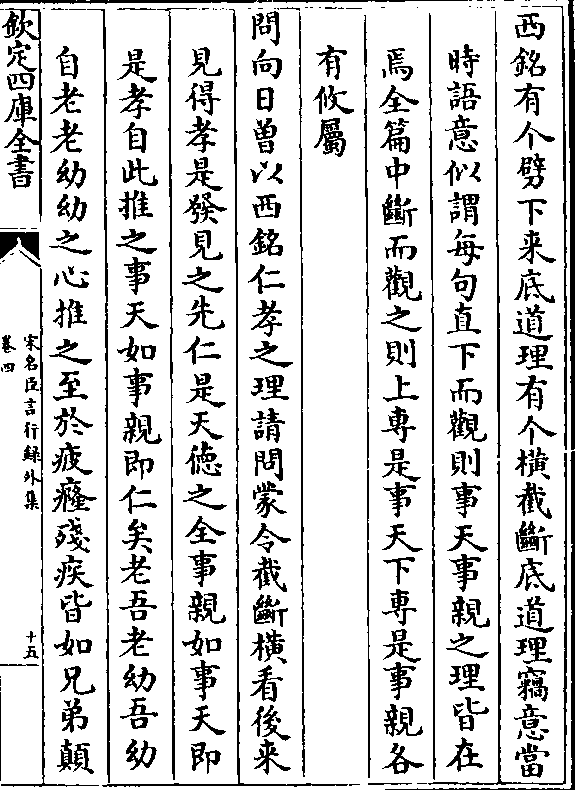 西銘有个劈下来底道理有个橫截斷底道理竊意當
時語意似謂每句直下而觀則事天事親之理皆在
焉全篇中斷而觀之則上專是事天下專是事親各
有攸屬
問向日曾以西銘仁孝之理請問蒙令截斷橫看後来
見得孝是發見之先仁是天徳之全事親如事天即
是孝自此推之事天如事親即仁矣老吾老幼吾幼
自老老幼幼之心推之至於疲癃殘疾皆如兄弟顛
欽定四庫全書
宋名臣言行録外集
卷四
十五